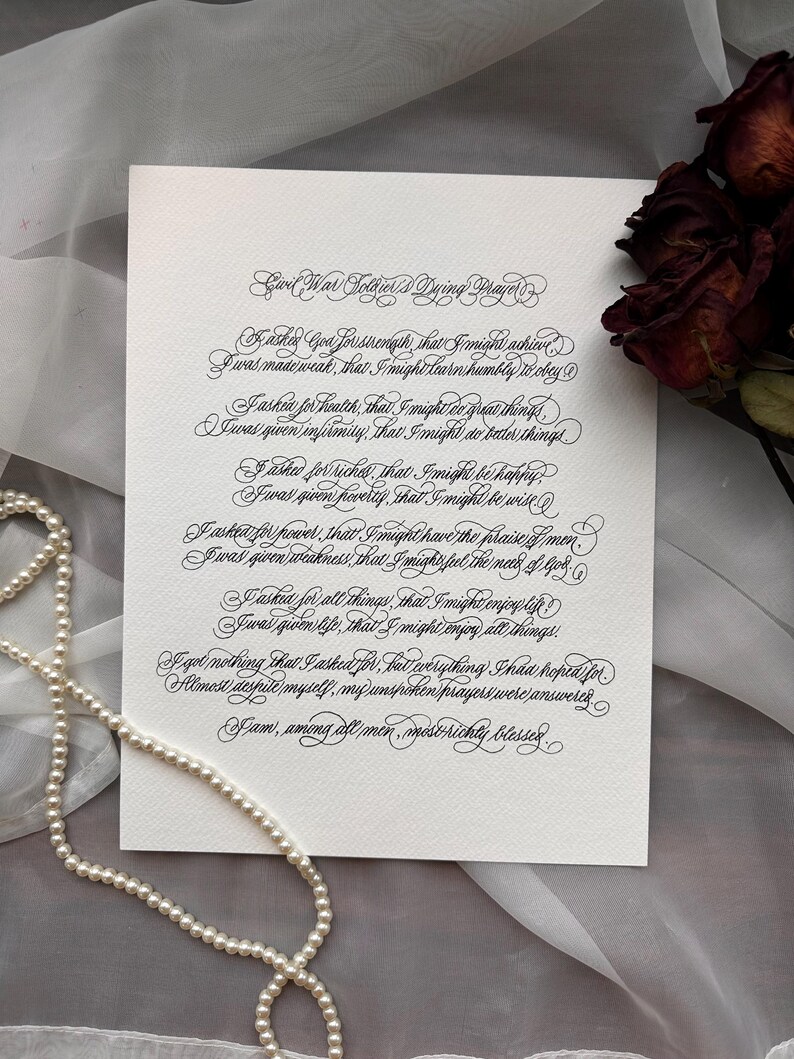 Civil War Soldier's Dying Prayer
I asked God for strength, that I might achieve,
I was made weak, that I might learn humbly to obey.
I asked for health, that I might do great things,
I was given infirmity, that I might do better things.
I asked for riches, that I might be happy,
I was given poverty, that I might be wise.
I asked for power, that I might have the praise of men,
I was given weakness, that I might feel the need of God.
I asked for all things, that I might enjoy life,
I was given life, that I might enjoy all things.
I got nothing that I asked for, but everything I had hoped for.
Almost despite myself, my unspoken prayers were answered.
I am, among all men, most richly blessed.